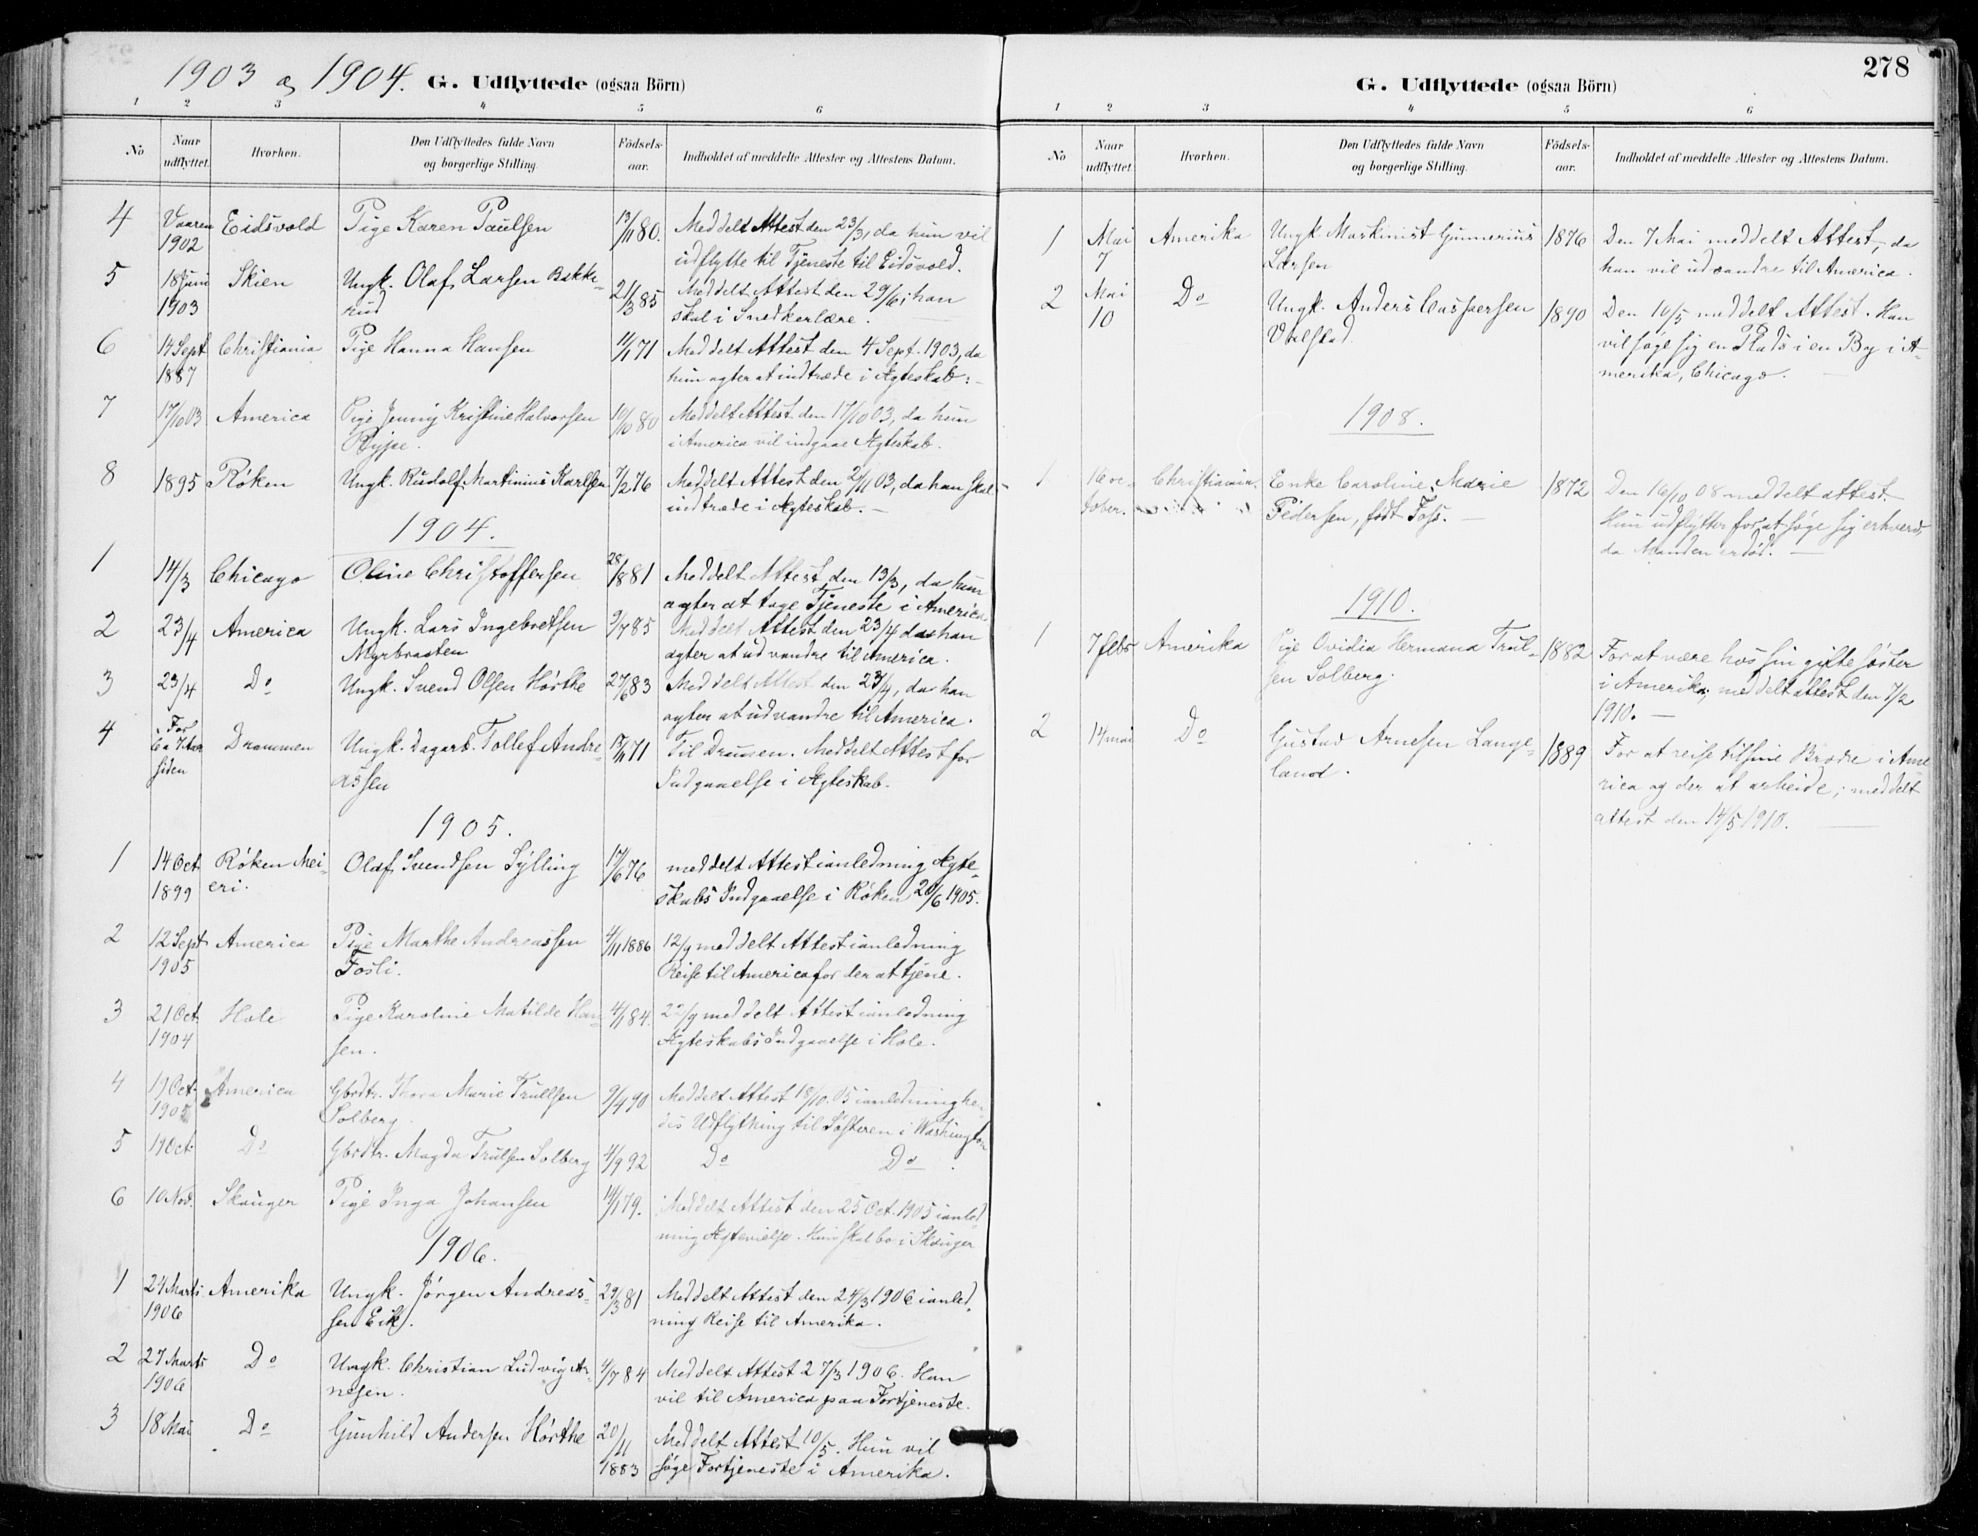 1903 og 1904. G. Udflyttede (ogsaa Börn)
1 2 3 4 5 6
No Naar udflyttet. Hvorhen. Den Udflyttedes fulde Navn og borgerlige Stilling. Födsels-aar. Indholdet af meddelte Attester og Attestens Datum.
4 Vaaren Eidsvold Pige Karen Paulsen 13/11 80. Meddelt Attest den 23/3, da hun vil
1902 udflytte til Tjeneste til Eidsvold.
5 18 Juni Skien Ungk. Olaf Larsen Bakke- 21/3 85 Meddelt Attest den 29/6; han
1903 rud skal i Snedkerlære.
6 14 Sept Christiania Pige Hanna Hansen 11/1 71 Meddelt Attest den 4 Sept. 1903, da
1887 hun agter at indtræde i Ægteskab.-
7 17/10 03 America Pige Jenny Kristine Halvorsen 10/10 80 Meddelt Attest den 17/10 03, da hun
Rypje. i America vil indgaae Ægteskab.
8 1895 Røken Ungk. Rudolf Martinius Karlsen 7/2 76 Meddelt Attest den 2/11 03, da han skal
indtræde i Ægteskab.-
1904.
1 14/3 Chicago Oline Christoffersen 28/1 881 Meddelt Attest den 13/3, da hun
agter at tage Tjeneste i America
2 23/4 America Ungk. Lars Ingebretsen 9/7 85 Meddelt Attest den 23/4 da han
Myrbraaten agter at udvandre til America.
3 23/4 Do Ungk. Svend Olsen Hörthe 27/6 83 Meddelt Attest den 23/4, da han
agter at udvandre til America.
4 For Drammen Ungk. Dagarb. Tollef Andre- 13/11 71 Til Dramen. Meddelt Attest for
Ca 7 Aar
siden assen Indgaaelse i Ægteskab.
1905.
1 14 Oct. Røken Mei- Olaf Svendsen Sylling 17/6 76 meddelt Attest i anledning Ægte-
1899 eri. skabs Indgaaelse i Røken 20/6 1905.
2 12 Sept America Pige Marthe Andreassen 4/11 1886 12/9 meddelt Attest i anledning
1905 Fosli. Reise til America for der at tjene.
3 21 Oct. Hole Pige Karoline Matilde Han- 4/1 84. 22/9 meddelt Attest i anledning
1904 sen. Ægteskabs Indgaaelse i Hole.
4 19 Oct. America Gbrdtr. Thora Marie Trullsen 9/4 90 Meddelt Attest 18/10. 05 i anledning hen-
1905 Solberg. des Udflytning til Søsteren i Washington
5 19 Oct. Do Gbrdtr. Magda Trulsen Solberg 4/9 92 Do Do.
6 10 Nov. Skouger Pige Inga Johansen 14/1 79. Meddelt Attest den 25 Oct. 1905 i anled-
ning Ægtevielse. Hun skal bo i Skouger
1906.
1 24 Marts Amerika Ungk. Jörgen Andreas- 29/3 81 Meddelt Attest den 24/3 1906 i anled-
1906 sen Eik. ning Reise til Amerika.
2 27 Marts Do Ungk. Christian Ludvig Ar- 4/7 84 Meddelt Attest 27/3 1906. Han
1906 nesen. vil til America paa Fortjeneste.
3 18 Mai Do Gunhild Andersen Hörthe 20/11 1883 Meddelt Attest 10/5. Hun vil
søge Fortjeneste i Amerika.
278
G. Udflyttede (ogsaa Börn)
1 2 3 4 5 6
No Naar udflyttet. Hvorhen. Den Udflyttedes fulde Navn og borgerlige Stilling. Födsels-aar. Indholdet af meddelte Attester og Attestens Datum.
1 Mai Amerika Ungk. Maskinist Gunnerius 1876 Den 7 Mai meddelt Attest, da
7 Larsen han vil udvandre til America.
2 Mai Do Ungk. Anders Caspersen 1890 Den 10/5 meddelt Attest. Han
10 Valstad. vil søge sig en Plads i en By i A-
merika, Chicago.
1908.
1 16 oc- Christiania. Enke Caroline Marie 1872 Den 16/10 08 meddelt attest.
tober. Pedersen, født Foss.- Hun udflytter for at søge sig erhverv,
da Manden er død.-
1910.
1 7 febr Amerika Pige Ovidia Hermana Trul- 1882 For at være hos sin gifte søster
sen Solberg. i Amerika; meddelt attest den 7/2
1910.-
2 14 mai Do Gustav Arnesen Lange- 1889 For at reise til sine Brødre i Ame
land. rica og der at arbeide; meddelt
attest den 14/5 1910.